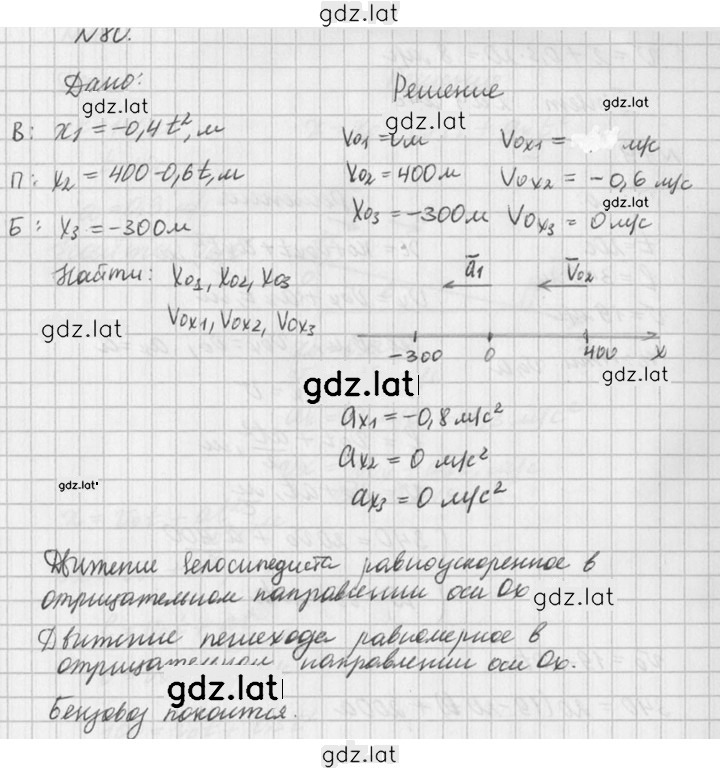 gdz.lat
N80.
Дано:
gdz.lat
В: x₁ = -0,4t², м
П: x₂ = 400-0,6t, м
Б: x₃ = -300м
Найти: x₀₁, x₀₂, x₀₃
V₀ₓ₁, V₀ₓ₂, V₀ₓ₃
gdz.lat
Решение
gdz.lat
gdz.lat
x₀₁ = 0м V₀ₓ₁ = м/с
x₀₂ = 400м V₀ₓ₂ = -0,6 м/с
gdz.lat
x₀₃ = -300м V₀ₓ₃ = 0 м/с
a̅₁ v̅₀₂
-300 0 400 x
gdz.lat
gdz.lat
aₓ₁ = -0,8 м/с²
aₓ₂ = 0 м/с²
aₓ₃ = 0 м/с²
gdz.lat
Движение велосипедиста равноускоренное в
отрицательном направлении оси Ox
gdz.lat
Движение пешехода равномерное в
отрицательном направлении оси Ox.
gdz.lat
Бензовоз покоится.
gdz.lat